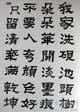 我家洗硯池頭樹
朵朵華開淡墨痕
不要人夸顏色好
只留清氣滿乾坤